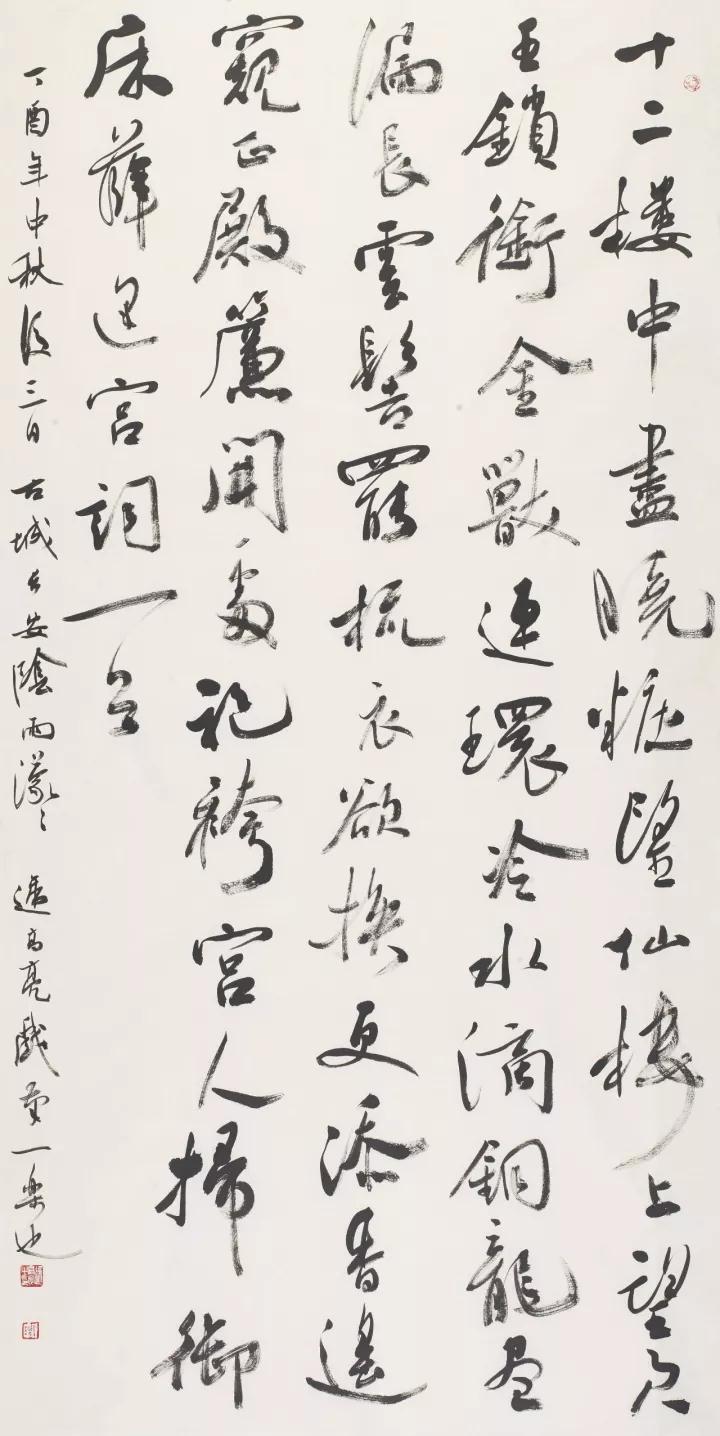 十二樓中盡曉粧望仙樓上望君
王鎖銜金獸連環冷水滴銅龍晝
漏長雲髻罷梳衣欲換更添香遙
窺正殿簾開處袍袴宮人掃御
床薛逢宮詞一首
丁酉年中秋後三日 古城長安陰雨濛々 高亮戲一樂也